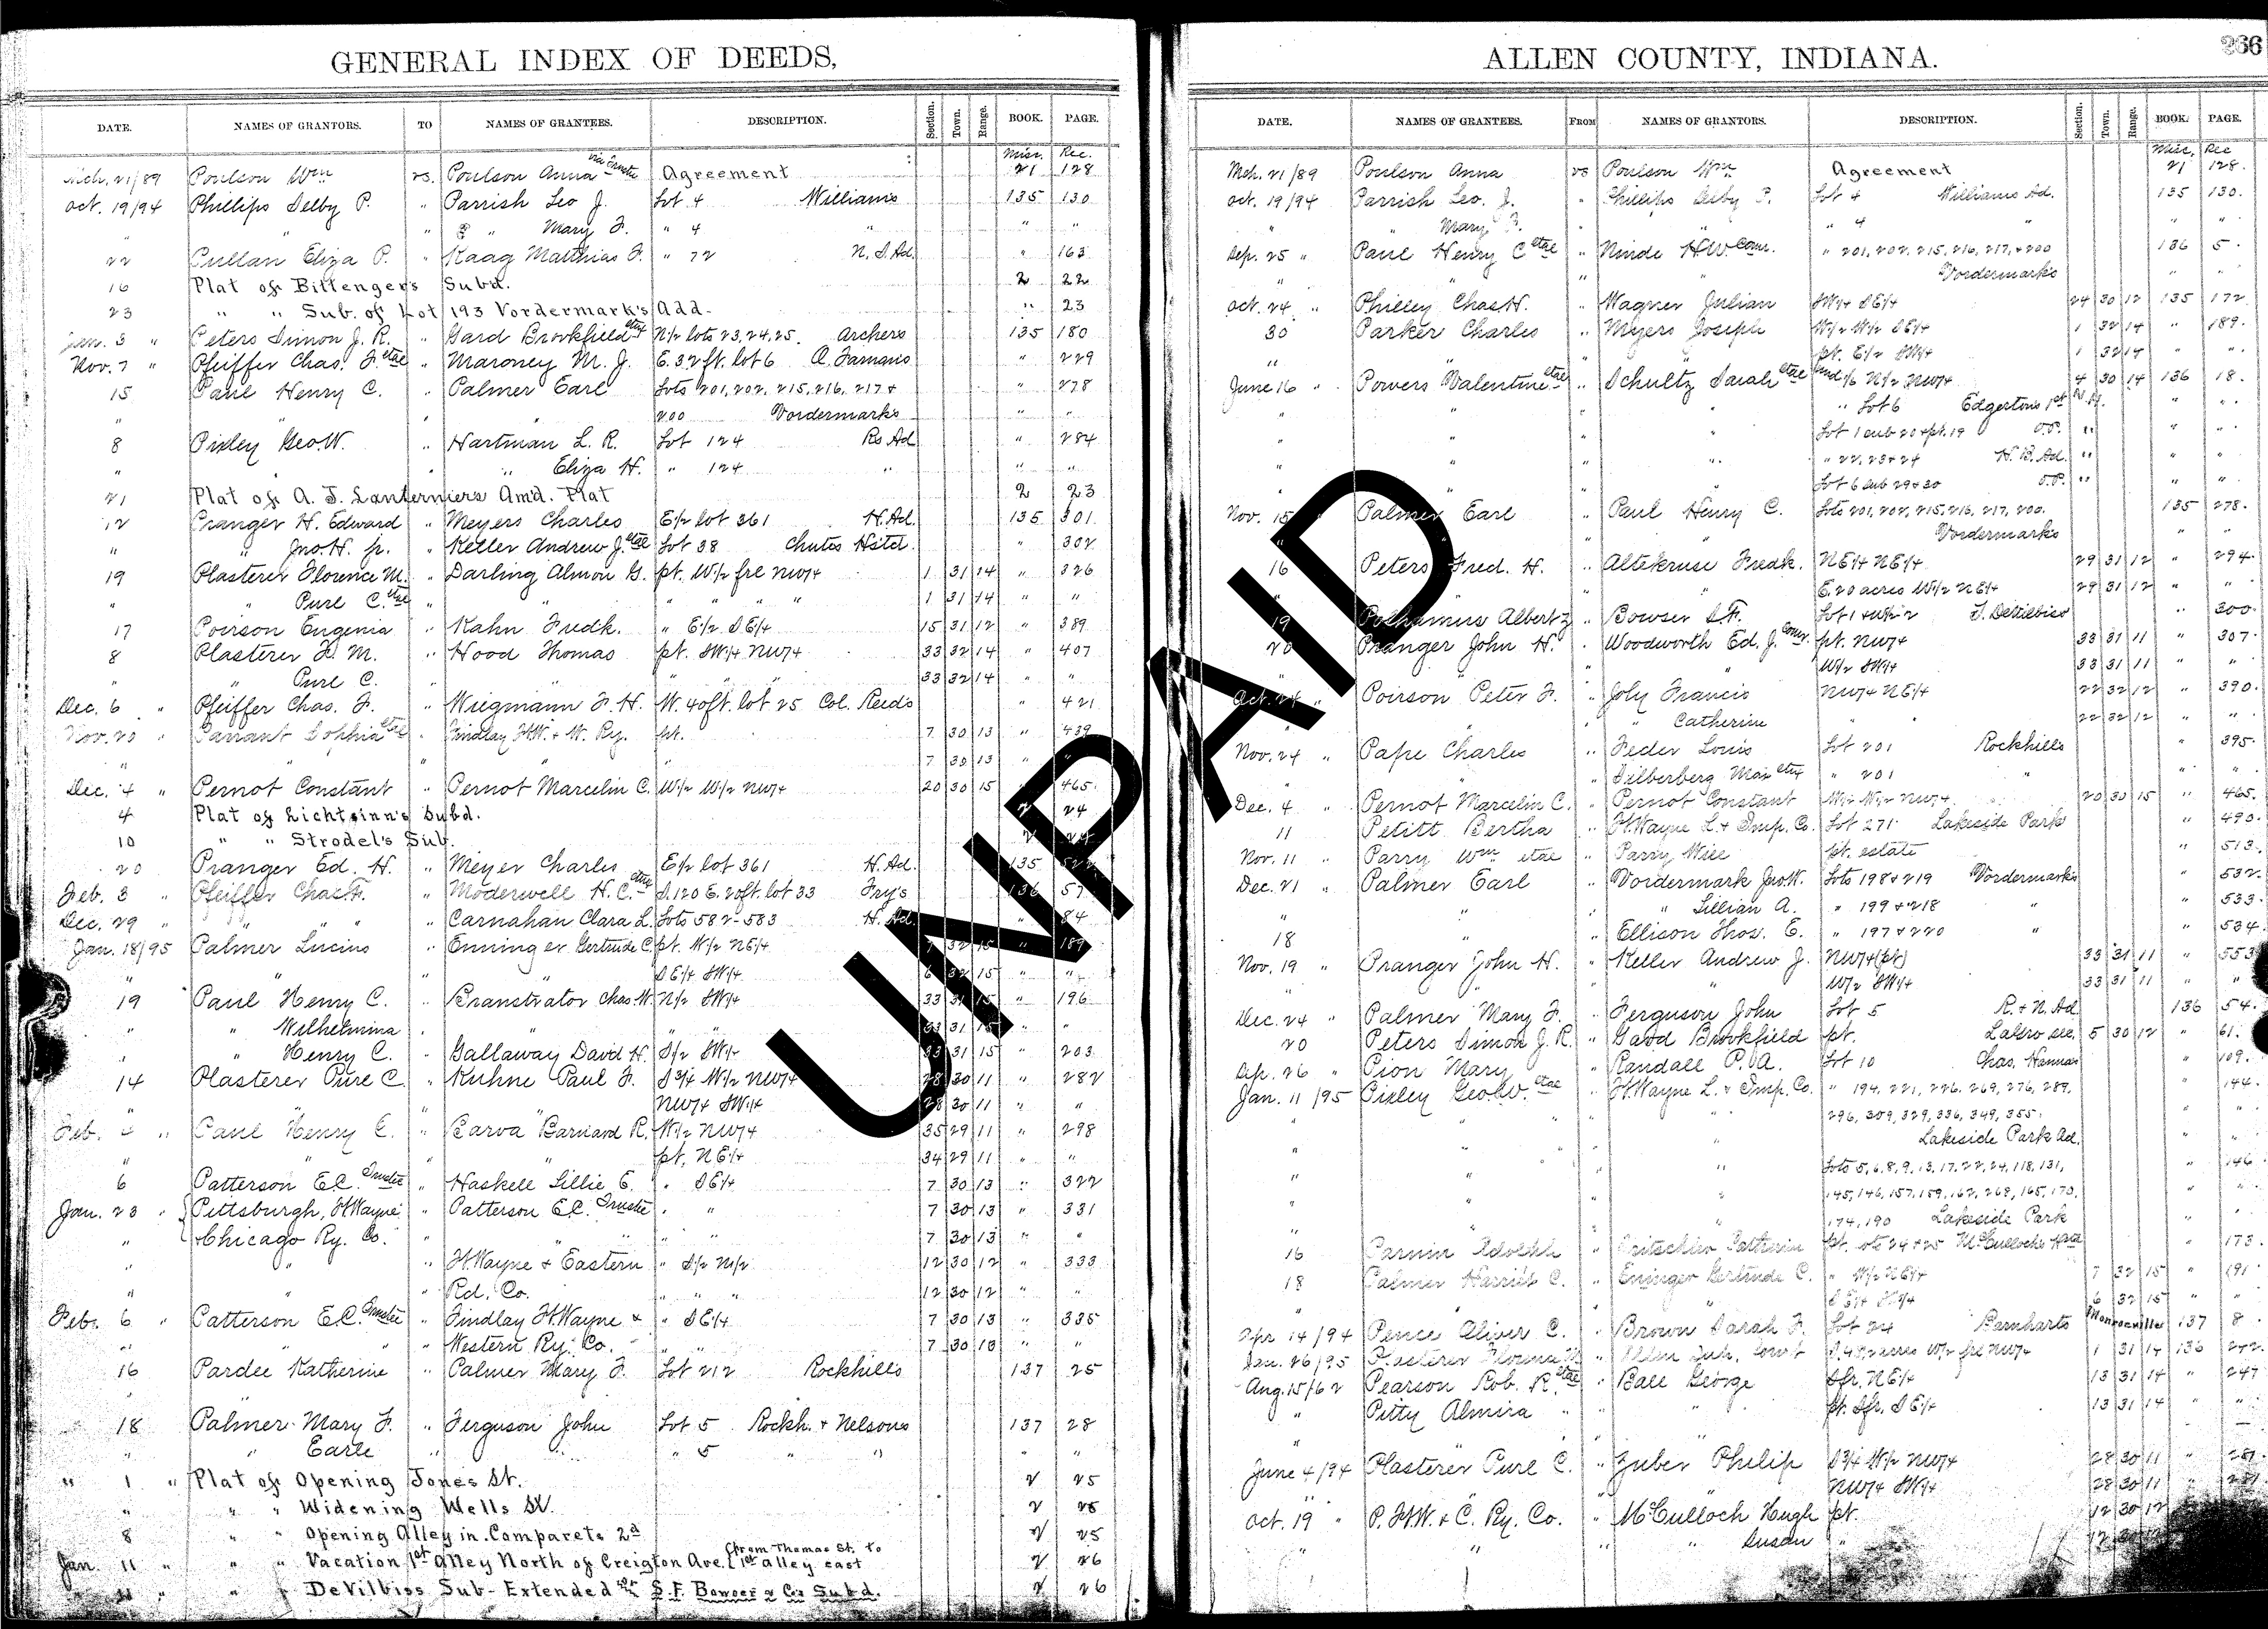 GENERAL INDEX OF DEEDS,
DATE. NAMES OF GRANTORS. TO NAMES OF GRANTEES. DESCRIPTION. Section. Town. Range. BOOK. PAGE.
Misc. Rec.
Mch. 21/89 Poulson Wm vs. Poulson Anna via Trustee Agreement 21 128
Oct. 19/94 Phillips Selby P. " Parrish Leo J. Lot 4 Williams 135 130
" " " Mary F. " 4 " " "
22 Pullan Eliza P. " Kaag Matthias F. " 72 N. S. Ad. " 163
16 Plat of Bittengers Subd. 2 22
23 " " Sub. of Lot 193 Vordermark's Add. " 23
Jan. 3 " Peters Simon J. R. " Gard Brookfield etux N/2 lots 23,24,25. Archers 135 180
Nov. 7 " Pfeiffer Chas. F. etal " Maroney M. J. E. 32 ft. lot 6 " 229
15 Paul Henry C. " Palmer Earl Lots 201, 202, 215, 216, 217 + " 278
" " " 200 Vordermarks " "
8 Pixley Geo. W. " Hartman L. R. Lot 124 Rs Ad " 284
" " " Eliza H. " 124 " " "
21 Plat of A. J. Lanterniers Am'd. Plat 2 23
12 Pranger H. Edward " Meyers Charles E/2 lot 361 H. Ad. 135 301
" " Jno. H. jr. " Keller Andrew J. etal Lot 38 Chutes Hstd. " 302
19 Plasterer Florence M. " Darling Almon G. pt. W/2 frl NW/4 1 31 14 " 326
" " Purl C. etal " " " " " " 1 31 14 " "
17 Poirson Eugenia " Kahn Fredk. " E/2 SE/4 15 31 12 " 389
8 Plasterer F. M. " Hood Thomas pt. SW/4 NW/4 33 32 14 " 407
" " Purl C. " " " " " 33 32 14 " "
Dec. 6 " Pfeiffer Chas. F. " Wiegmann F. H. W. 40 ft. lot 25 Col. Reeds " 421
Nov. 20 " Parrant Sophia etal " Findlay Ft.W. + W. Ry. pt. 7 30 13 " 439
" " " " 7 30 13 " "
Dec. 4 " Pernot Constant " Pernot Marcelin C. W/2 W/2 NW/4 20 30 15 " 465
4 Plat of Lichtsinn's Subd. 2 24
10 " " Strodel's Sub. 2 24
20 Pranger Ed. H. " Meyer Charles E/2 lot 361 H. Ad. 135 522
Feb. 8 " Pfeiffer Chas. F. " Moderwell H. C. etux S. 120 E. 20 ft. lot 33 Fry's 136 57
Dec. 29 " " " " Carnahan Clara L. Lots 582-583 H. Ad. " 84
Jan. 18/95 Palmer Lucius " Enninger Gertrude C. pt. W/2 NE/4 7 32 15 " 189
" " " " SE/4 SW/4 6 32 15 " "
19 Paul Henry C. " Branstrator Chas. W. N/2 SW/4 33 31 15 " 196
" " Wilhelmina " " " " 33 31 15 " "
" " Henry C. " Gallaway David H. S/2 SW/4 33 31 15 " 203
14 Plasterer Purl C. " Kuhne Paul F. S 3/4 W/2 NW/4 28 30 11 " 282
" " " " NW/4 SW/4 28 30 11 " "
Feb. " Paul Henry C. " Barva Barnard R. W/2 NW/4 35 29 11 " 298
" " " " pt. NE/4 34 29 11 " "
6 Patterson E.C. Trustee " Haskell Lillie E. " SE/4 7 30 13 " 322
Jan. 23 " Pittsburgh, Ft.Wayne " Patterson E.C. Trustee " " 7 30 13 " 331
" + Chicago Ry. Co. " " " " " 7 30 13 " "
" " " Ft.Wayne + Eastern " S/2 N/2 12 30 12 " 333
" " " Rd. Co. " " " 12 30 12 " "
Feb. 6 " Patterson E.C. Trustee " Findlay Ft.Wayne + " SE/4 7 30 13 " 335
" " " Western Ry. Co. " " 7 30 13 " "
16 Pardee Katherine " Palmer Mary F. Lot 212 Rockhills 137 25
18 Palmer Mary F. " Ferguson John Lot 5 Rockh. + Nelsons 137 28
" " Earle " " " 5 " " " "
" 1 " Plat of Opening Jones St. 2 25
" " " Widening Wells St. 2 25
8 " " Opening Alley in Comparets 2d 2 25
Jan. 11 " " " Vacation 1st Alley North of Creigton Ave. (from Thomas St. to 1st alley east 2 26
" " " DeVilbiss Sub-Extended S. F. Bowser & Co's Subd. 2 26
ALLEN COUNTY, INDIANA.
266
DATE. NAMES OF GRANTEES. FROM NAMES OF GRANTORS. DESCRIPTION. Section. Town. Range. BOOK. PAGE.
Misc. Rec
Mch. 21/89 Poulson Anna vs Poulson Wm. Agreement 21 128.
Oct. 19/94 Parrish Leo. J. " Phillips Selby P. Lot 4 Williams Ad. 135 130.
" " Mary F. " " " 4 " " "
Sep. 25 " Paul Henry C etal " Ninde H.W. Comr. " 201, 202, 215, 216, 217, + 200 136 5.
" Vordermarks " "
Oct. 24 " Philley Chas. H. " Wagner Julian SW/4 SE/4 24 30 12 135 172
30 Parker Charles " Myers Joseph W/2 W/2 SE/4 1 32 14 " 189.
" " " " pt. E/2 SW/4 1 32 14 " "
June 16 " Powers Valentine etal " Schultz Sarah etal und 1/6 N/2 NW/4 4 30 14 136 18.
" " " " " Lot 6 Edgertons 1st " "
" " " " Lot 1 sub 20 + pt. 19 O.P. " " "
" " " " " 22, 23 + 24 H. B. Ad. " " "
" " " " Lot 6 sub 29 + 30 O.P. " " "
Nov. 15 " Palmer Earl " Paul Henry C. Lots 201, 202, 215, 216, 217, 200. 135 278.
" Vordermarks " "
16 Peters Fred. H. " Altekruse Fredk. NE/4 NE/4 29 31 12 " 294.
" " " E. 20 acres W/2 NE/4 29 31 12 " "
19 Polhamus Albert Z. " Bowser S.F. " 300.
20 Pranger John H. " Woodworth Ed. J. Comr. pt. NW/4 33 31 11 " 307.
" W/2 SW/4 33 31 11 " "
Oct. 24 " Poirson Peter F. " Joly Francis NW/4 NE/4 22 32 12 " 390.
" " Catherine " " 22 32 12 " "
Nov. 24 " Pape Charles " Feder Louis Lot 201 Rockhills " 395.
" " " Silberberg Max etux " 201 " " "
Dec. 4 " Pernot Marcelin C. " Pernot Constant W/2 W/2 NW/4 20 30 15 " 465.
11 Petitt Bertha " Ft.Wayne L. + Imp. Co. Lot 271 Lakeside Park " 490.
Nov. 11 " Parry Wm etal " Parry Will pt. estate " 513.
Dec. 21 " Palmer Earl " Vordermark Jno. W. Lots 198 + 219 Vordermarks " 532.
" " " " Lillian A. " 199 + 218 " " 533.
18 " " Ellison Thos. E. " 197 + 220 " " 534.
Nov. 19 " Pranger John H. " Keller Andrew J. NW/4 (pt) 33 31 11 " 553
" " " " W/2 SW/4 33 31 11 " "
Dec. 24 " Palmer Mary F. " Ferguson John Lot 5 R. + N. Ad 136 54.
20 Peters Simon J. R. " Gard Brookfield pt. LaGro Res. 5 30 12 " 61.
Apr. 26 " Pion Mary " Randall P. A. Lot 10 Chas. Hannas " 109.
Jan. 11/95 Pixley Geo. W. etal " Ft.Wayne L. + Imp. Co. " 194, 221, 226, 269, 276, 289, " 144.
" " " " 296, 309, 329, 336, 349, 355. " "
" " " Lakeside Park Ad. " "
" " " Lots 5, 6, 8, 9, 13, 17, 22, 24, 118, 131, " 146
" " " 145, 146, 157, 159, 162, 268, 165, 170, " "
" " " 174, 190 Lakeside Park " "
16 Parnin Adolph " Fritschler Catherin pt. lots 24 + 25 McCullochs " 173.
18 Palmer Harriet C. " Eninger Gertrude C. " W/2 NE/4 7 32 15 " 191
" " " " SE/4 SW/4 6 32 15 " "
Apr 14/94 Pence Oliver C. " Brown Sarah F. Lot 24 Barnharts Monroeville 137 8
Jan. 26/95 Plasterer Florence M " Allen Cir. Court W/2 frl NW/4 1 31 14 136 242.
Aug. 15/62 Pearson Rob. R. etal " Ball George Sfr. NE/4 13 31 14 " 247
" Petty Almira " " pt. Sfr. SE/4 13 31 14 " "
June 4/94 Plasterer Purl C. " Zuber Philip S 3/4 W/2 NW/4 28 30 11 " 281.
" " " NW/4 SW/4 28 30 11 " 281
Oct. 19 " P. Ft.W. + C. Ry. Co. " McCulloch Hugh pt. 12 30 12
" " " " Susan " 12 30 12
UNPAID